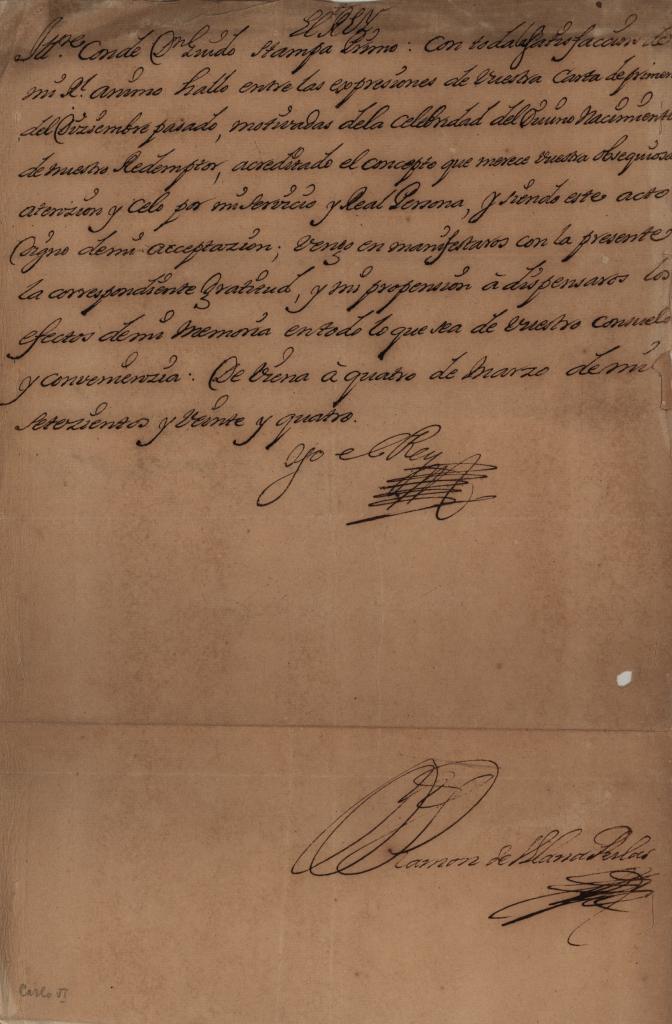 EL REY
Ill.re Conde Dn Guido Stampa Primo: Con toda satisfaccion de
mi Rl. animo hallo entre las expresiones de vuestra Carta de primero
del Diziembre pasado, motivadas dela celebridad del Divino Nacimiento
de nuestro Redemptor, acreditado el concepto que merece vuestra obsequiosa
atenzion y celo por mi servicio y Real Persona, y siendo este acto
Digno demi acceptazion; vengo en manifestaros con la presente
la correspondiente Gratitud, y mi propension à dispensaros los
efectos demi Memoria en todo lo que sea de vuestro consuelo
y convenienzia: De Viena à quatro de Marzo de mil
setezientos y Veinte y quatro.
Yo el Rey
Ramon de Vilana Perlas
Carlo VI